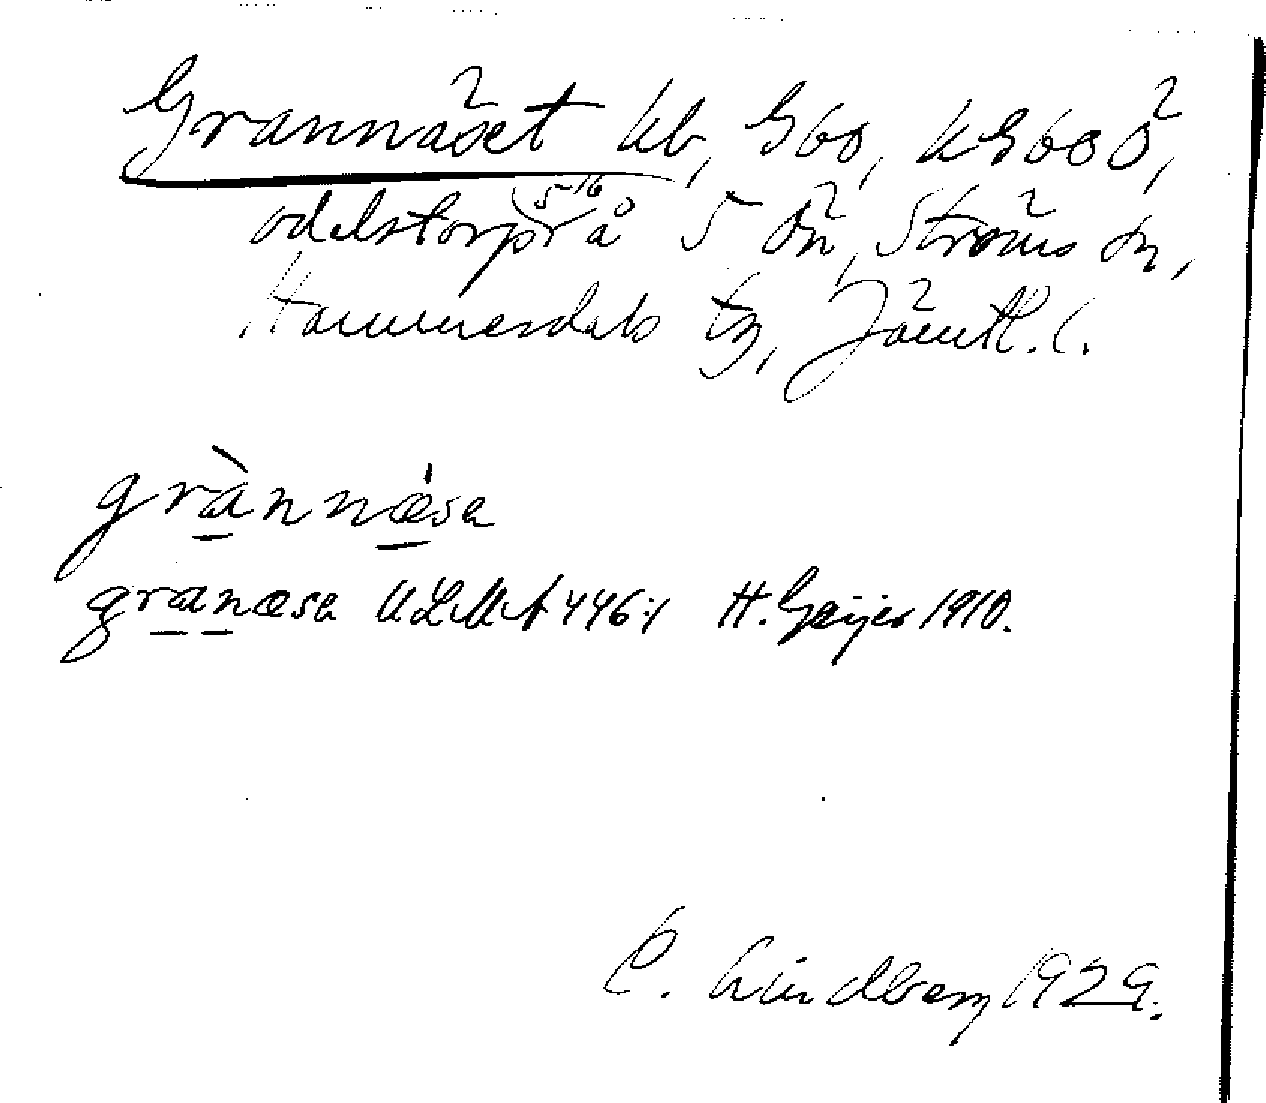 Grannäset kb, Gbo, kGbo Ö,
odelstorp på 5-16 5 Ön, Ströms sn,
Hammerdals tg, Jämtl. l.
grànnǽsa
granæsa ULMA 446:1 H. Geijer 1910.
C. Lindberg 1929.